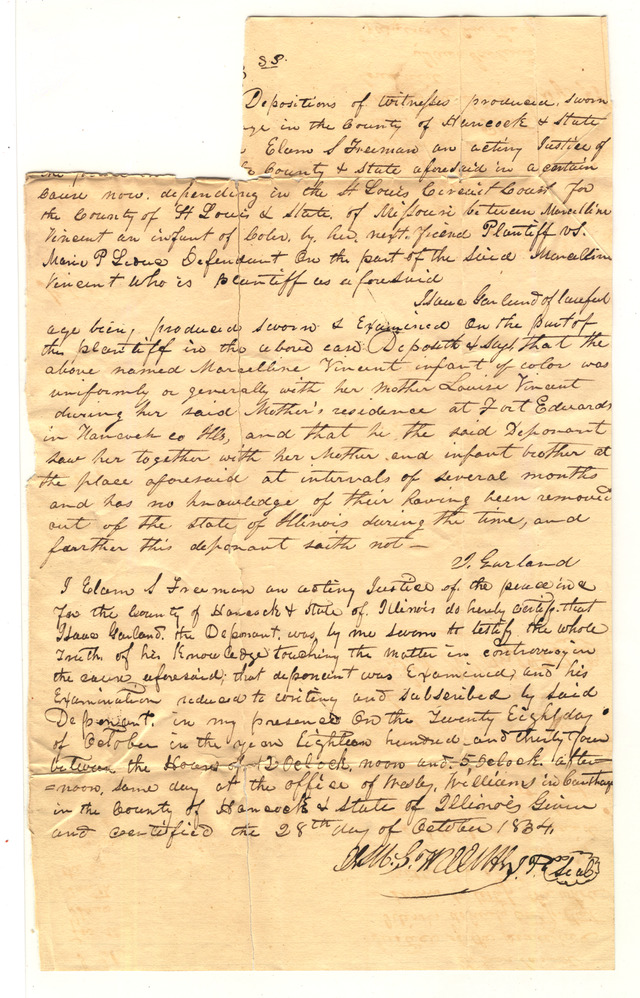 SS.
Depositions of witnesses produced, sworn
in the County of Hancock & State
Elam S Freeman an acting Justice of
County & State aforesaid in a certain
Cause now depending in the St Louis Circuit Court for
the County of St Louis & State of Missouri between Marcelline
Vincent an infant of Color, by her next friend Plantiff vs.
Marie P Leduc Defendant On the part of the Said Marcelline
Vincent who is plantiff as aforesaid
Isaac Garland of lawful
age being produced sworn & Examined On the part of
the plantiff in the above case Deposeth & says that the
above named Marcelline Vincent infant of color was
uniformly or generally with her Mother Louise Vincent
during her said Mother's residence at Fort Edwards
in Hancock co Ills, and that he the said Deponant
saw her together with her Mother and infant brother at
the place aforesaid at intervals of several months
and has no knowledge of their having been removed
out of the state of Illinois during the time, and
farther this deponant saith not —
I. Garland
I Elam S Freeman an acting Justice of the peace in &
for the County of Hancock & State of Illinois do hereby certify that
Isaac Garland the Deponant, was by me sworn to testify the whole
Truth of his Knowledge touching the matter in controversy in
the cause aforesaid; that deponent was Examined, and his
Examination reduced to writing and subscribed by said
Deponent in my presence On the Twenty Eight day
of October in the year Eighteen hundred and thirty four
between the Hours of 12 Oclock noon and 5 Oclock after
=noon, same day at the office of Wesley Williams in Carthage
in the County of Hancock & State of Illinois Given
and certified the 28th day of October 1834
J.P. Seal